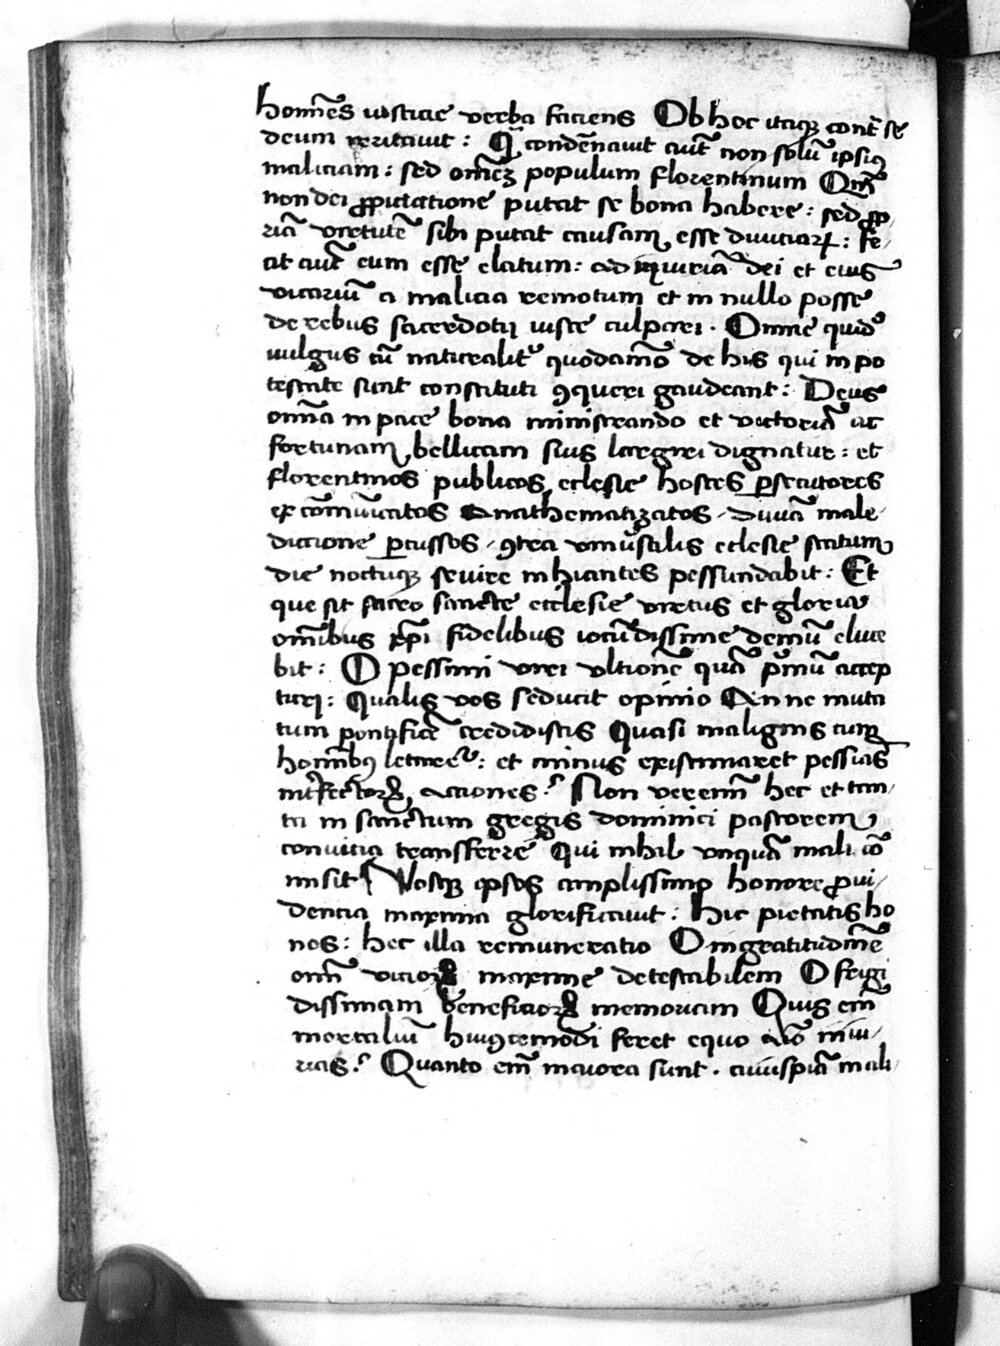 homı̄es iusticie verba faciens Ob hoc itaqꝫ cont̄ se
deum irritauit : Qm̄ condēnauit aut̄ non solū ipsiꝰ
maliciam : sed om̄eꝫ populum florentinum Qm̄
non dei ꝓputatione putat se bona habere : sed ꝓp
riā virtutē sibi putat causam esse diuiciaꝝ : fe
cit aut̄ eum esse elatum : ad iniuriā dei et eius
vicariū a malicia remotum et in nullo posse
de rebus sacerdotij iuste culpari . Omne quidē
uulgus cū naturalitᵉʳ quodāmō de his qui in po
testate sunt constituti ꝯqueri gaudeant : Deus
omnia in pace bona ministrando et victoriā ac
fortunam bellicam suis largiri dignatur : et
florentinos publicos ecclesie hostes ꝑsecutores
excōmūicatos Anathematizatos , diuīa male
dictione ꝑcussos , ꝯtra vniūsalis ecclesie statum
die noctuqꝫ seuire inhiantes pessundabit : Et
que sit sacro sancte ecclesie virtus et gloria
om̄ibus xp̄i fidelibus iocūdissime demū eluce
bit : O pessimi viri vltionē quā pͥmū accep
turi : Qualis vos seducit opinio An ne muta
tum pontificē credidistis Quasi malignis cum
hom̄ibꝰ letaretᵘʳ : et minus existimaret pessiās
int̄fectorꝝ acciones ? Non verem̄ hec et tan
ta in sanctum gregis dominici pastorem
conuicia transferre Qui nihil vnquā mali cō
misit Vosqꝫ ipsos amplissimo honore ꝓui
dentia maxima glorificauit : Hic pietatis ho
nos : hec illa remuneratio O ingratitudinē
om̄ vicioꝝ maxime detestabilem O frigi
dissimam beneficioꝝ memoriam Quis em̄
mortaliū huiꝰcemodi feret equo aīo iniu
rias ? Quanto em̄ maiora sunt . auuspiā mali